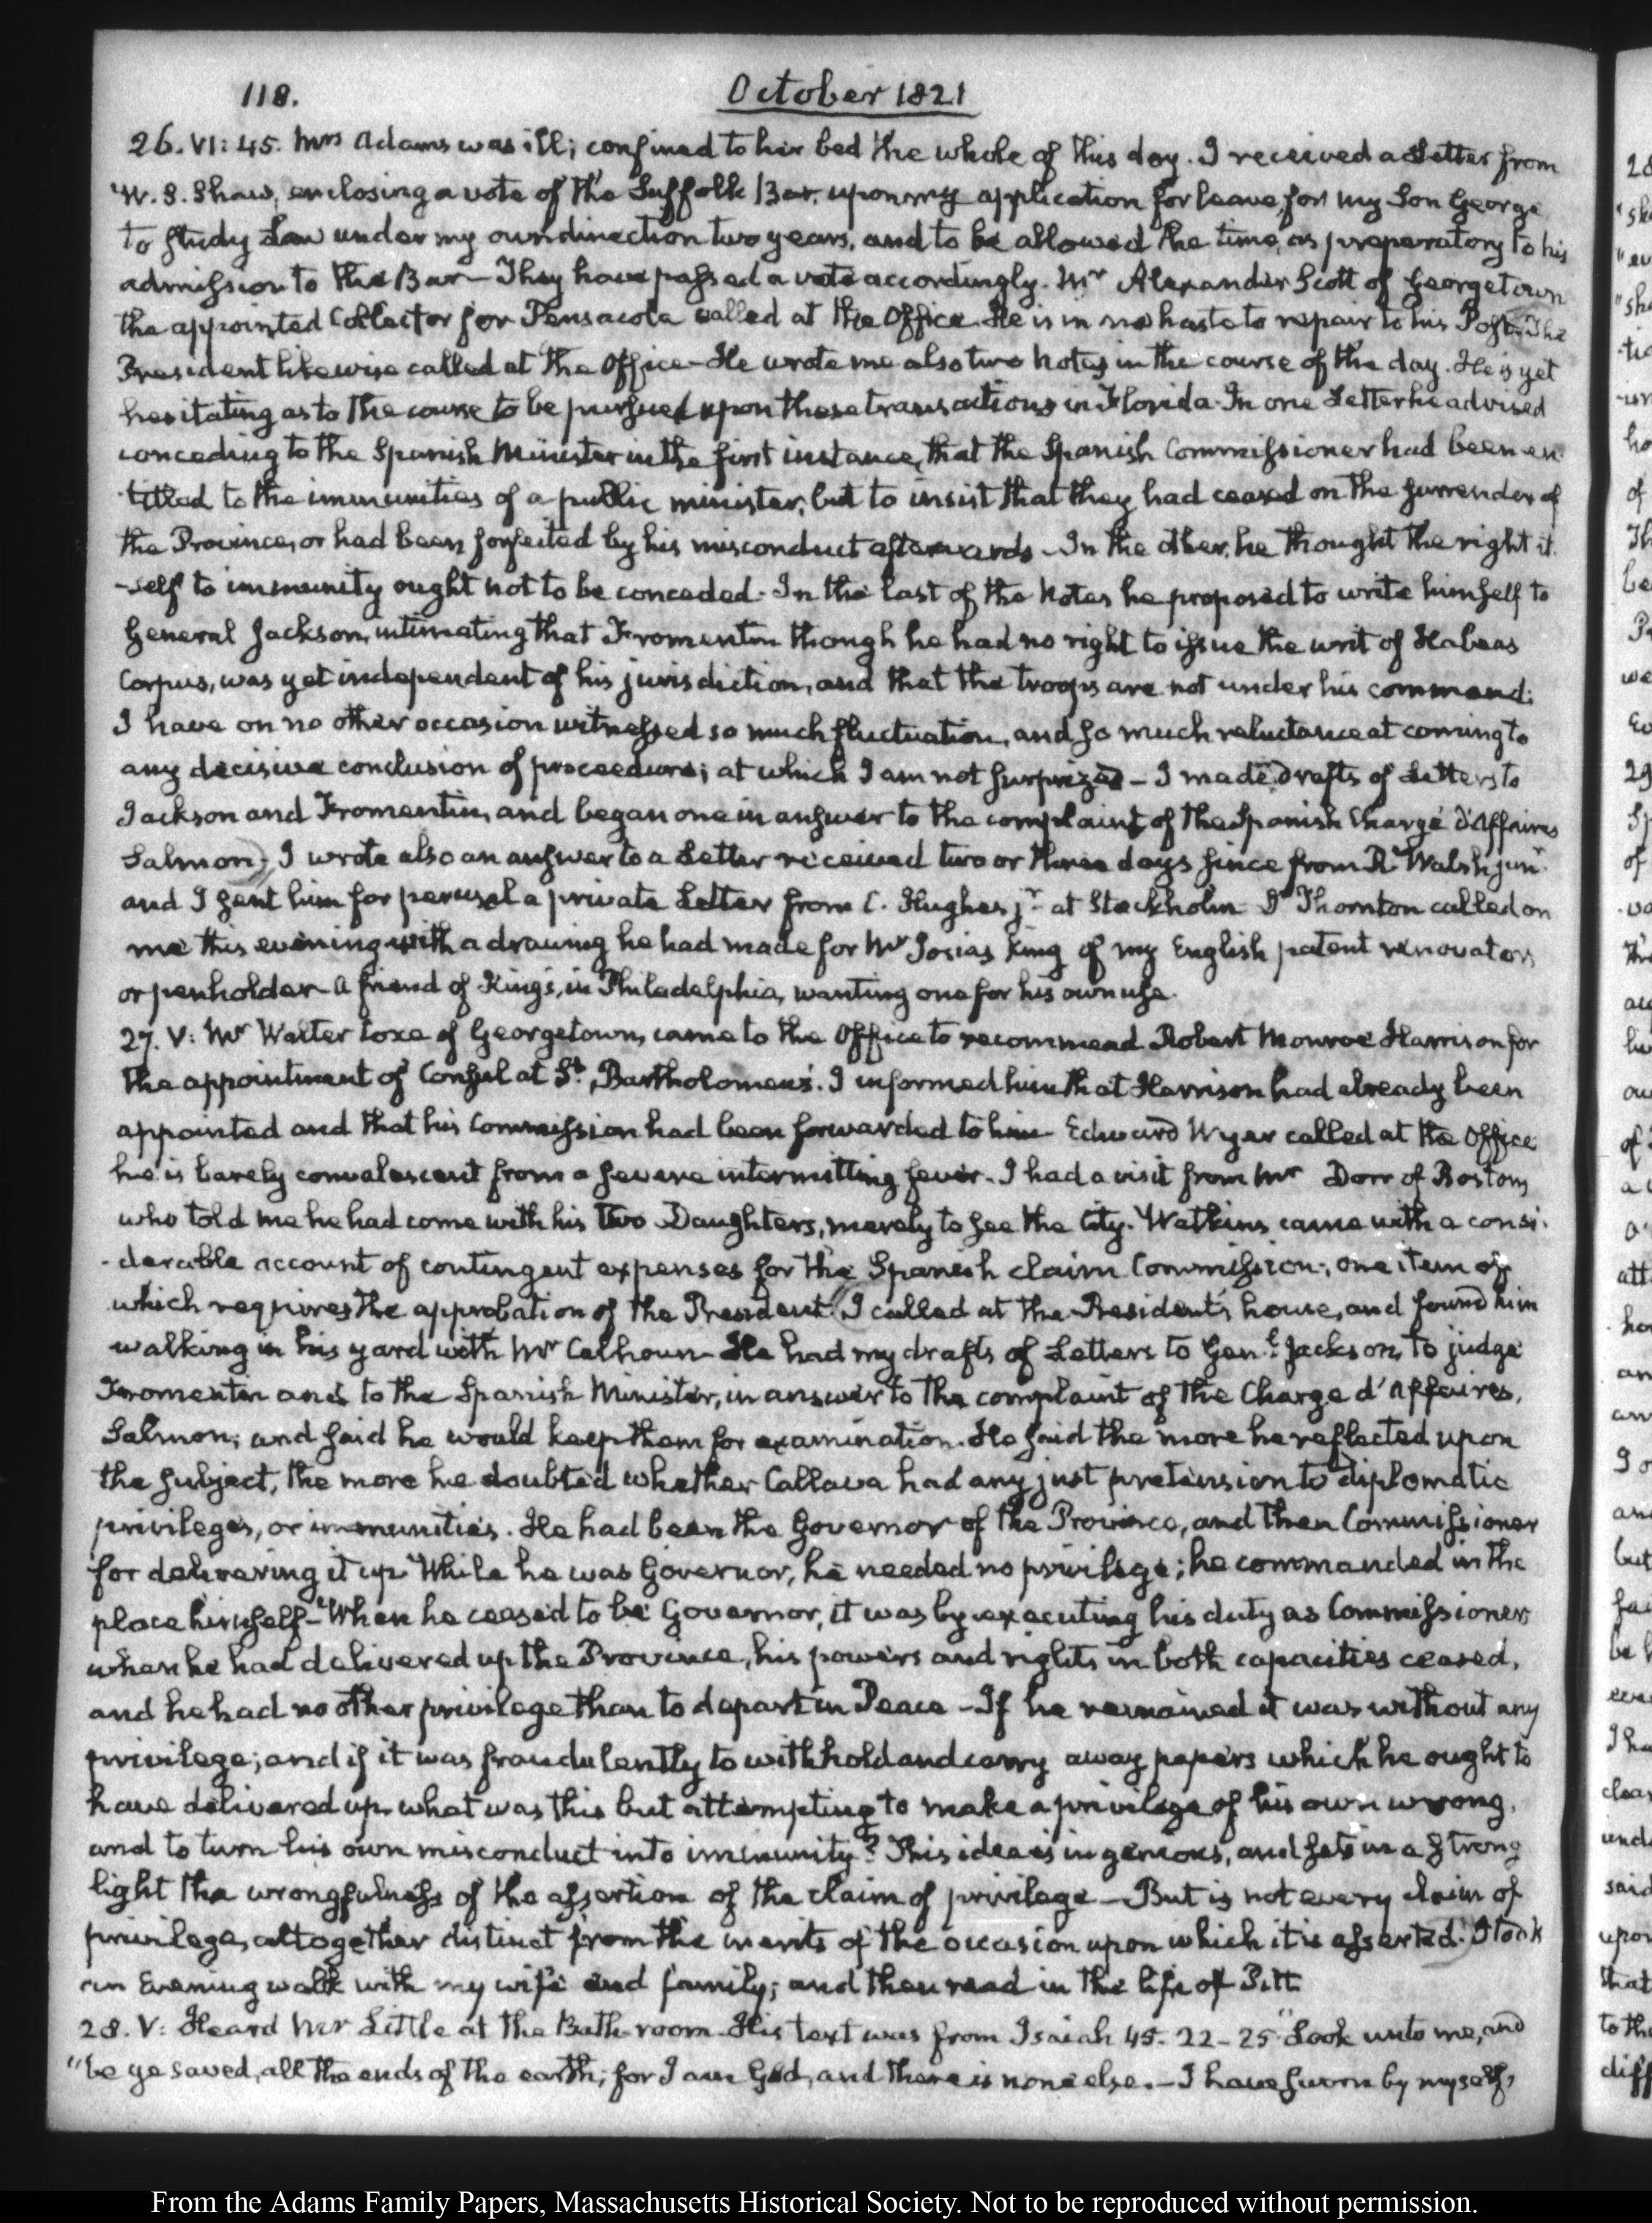 118.
October 1821
26. VI: 45. Mrs Adams was ill; confined to her bed the whole of this day. I received a Letter from
W. S. Shaw, enclosing a vote of the Suffolk Bar, upon my application for leave, for my Son George
to study Law under my own direction two years, and to be allowed the time, as preparatory to his
admission to the Bar— They have passed a vote accordingly. Mr Alexander Scott of Georgetown
the appointed Collector for Pensacola called at the Office. He is in no haste to repair to his Post. The
President likewise called at the Office— He wrote me also two Notes in the course of the day. He is yet
hesitating as to the course to be pursued upon these transactions in Florida. In one Letter he advised
conceding to the Spanish Minister in the first instance, that the Spanish Commissioner had been en-
-titled to the immunities of a public minister, but to insist that they had ceased on the surrender of
the Province, or had been forfeited by his misconduct afterwards— In the other, he thought the right it-
-self to immunity ought not to be conceded. In the last of the Notes he proposed to write himself to
General Jackson, intimating that Fromentin though he had no right to issue the writ of Habeas
Corpus, was yet independent of his jurisdiction, and that the troops are not under his command.
I have on no other occasion witnessed so much fluctuation, and so much reluctance at coming to
any decisive conclusion of procedure; at which I am not surprized— I made drafts of Letters to
Jackson and Fromentin, and began one in answer to the complaint of the Spanish Chargé d'Affaires
Salmon; I wrote also an answer to a Letter received two or three days since from R. Walsh junr.
and I sent him for perusal a private Letter from C. Hughes jr at Stockholm Dr Thornton called on
me this evening with a drawing he had made for Mr Josias King of my English patent renovator
or penholder— A friend of King's, in Philadelphia, wanting one for his own use.
27. V: Mr Walter Coxe of Georgetown, came to the Office to recommend Robert Monroe Harrison for
the appointment of Consul at St. Bartholomew's. I informed him that Harrison had already been
appointed and that his Commission had been forwarded to him— Edward Wyer called at the Office
he is barely convalescent from a severe intermitting fever. I had a visit from Mr Dorr of Boston,
who told me he had come with his two Daughters, merely to see the City. Watkins came with a consi-
-derable account of contingent expenses for the Spanish claim Commission; one item of
which requires the approbation of the President. I called at the President's house, and found him
walking in his yard with Mr Calhoun— He had my drafts of Letters to Genl. Jackson, to judge
Fromentin and to the Spanish Minister, in answer to the complaint of the Charge d'Affaires,
Salmon; and said he would keep them for examination. He said the more he reflected upon
the subject, the more he doubted whether Callava had any just pretension to diplomatic
privileges, or immunities. He had been the Governor of the Province, and then Commissioner
for delivering it up— While he was Governor, he needed no privilege; he commanded in the
place himself— When he ceased to be Governor, it was by executing his duty as Commissioner
when he had delivered up the Province, his powers and rights in both capacities ceased,
and he had no other privilege than to depart in Peace— If he remained it was without any
privilege; and if it was fraudulently to withhold and carry away papers which he ought to
have delivered up what was this but attempting to make a privilege of his own wrong,
and to turn his own misconduct into immunity? This idea is ingenious, and sets in a strong
light the wrongfulness of the assertion of the claim of privilege— But is not every claim of
privilege, altogether distinct from the merits of the occasion upon which it is asserted. I took
an Evening walk with my wife and family; and then read in the life of Pitt
28. V: Heard Mr Little at the Bath-room. His text was from Isaiah 45. 22-25 "Look unto me, and
"be ye saved, all the ends of the earth; for I am God, and there is none else.— I have sworn by myself,
From the Adams Family Papers, Massachusetts Historical Society. Not to be reproduced without permission.